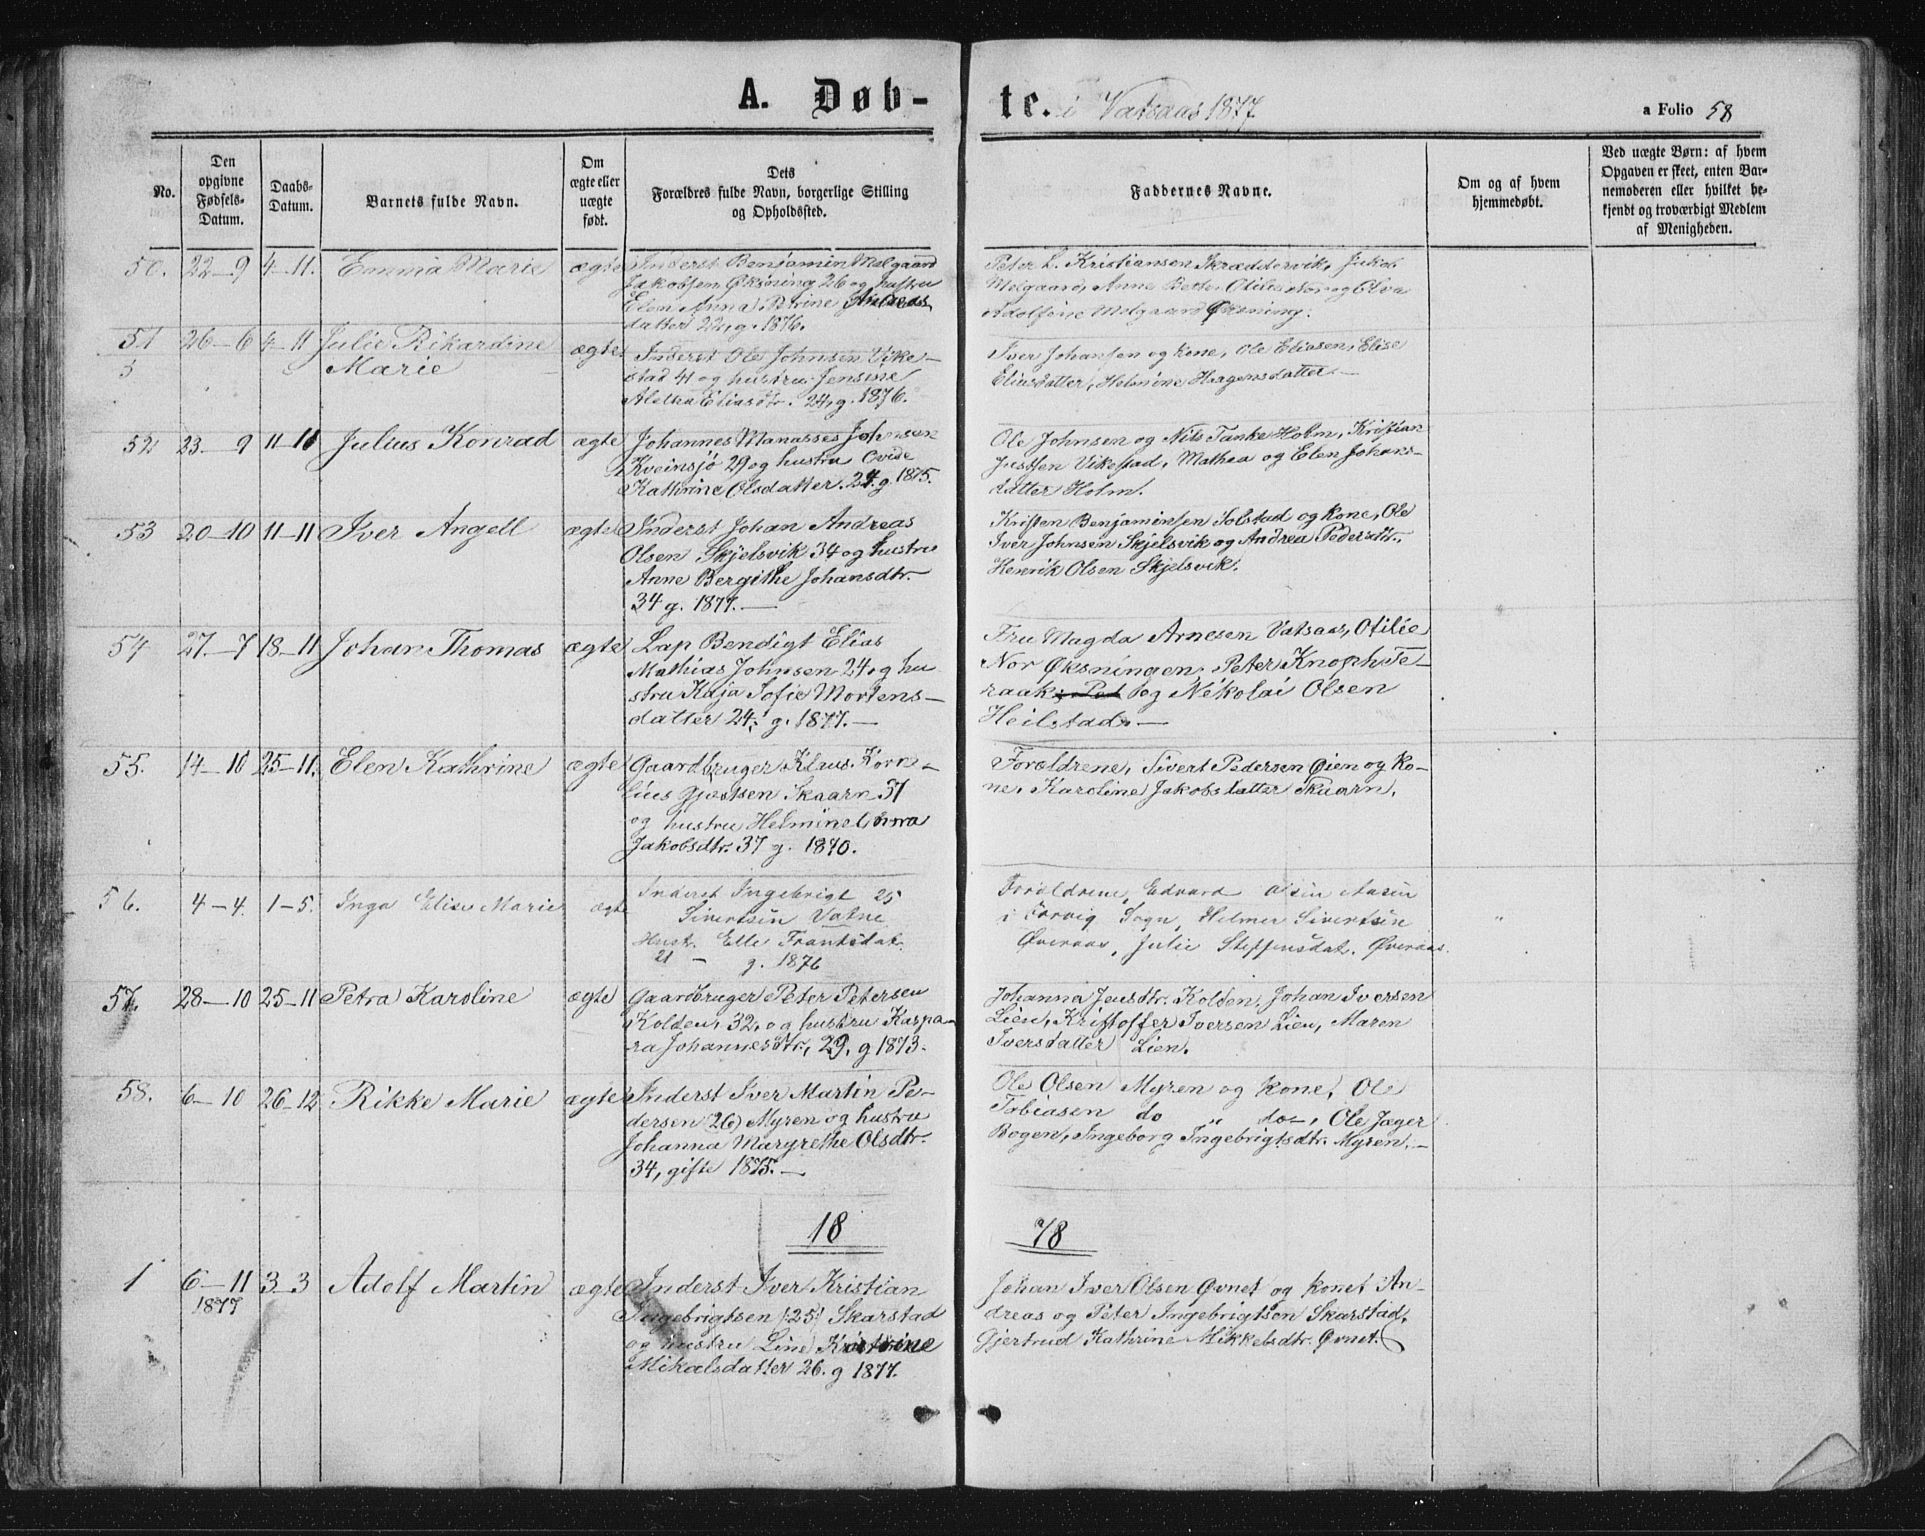 A. Døb-
te. i Vatsaas 1877
a Folio 58
No.
Den
opgivne
Fødsels-
Datum.
Daabs-
Datum.
Barnets fulde Navn.
Om
ægte eller
uægte
født.
Dets
Forældres fulde Navn, borgerlige Stilling
og Opholdssted.
Faddernes Navne.
Om og af hvem
hjemmedøbt.
Ved uægte Børn: af hvem
Opgaven er skeet, enten Bar-
nemoderen eller hvilket be-
kjendt og troværdigt Medlem
af Menigheden.
50. 22–9 4–11. Emma Marie ægte
Inderst Benjamin Melgaard
Jakobsen Øksning 26 og hustru
Elen Anna Petrine Andreas
datter 22, g. 1876.
Peter L. Kristiansen Skræddervik, Jakob
Melgaard, Anne Bet Otilie Nor og Olva
Adolfine Melgaard Øksning.
51 26–6 4–11 Julie Rikardine
Marie
ægte
Inderst Ole Johnsen Vike-
stad 41 og hustru Jensine
Aletha Eliasdtr. 24, g. 1876.
Iver Johansen og kone, Ole Eliasen, Elise
Eliasdatter, Helmine Haagensdatter.
52 23–9 11–11 Julius Konrad ægte
Johannes Manasses Johnsen
Kveinsjø 29 og hustru Ovide
Kathrine Olsdatter. 24. g. 1875.
Ole Johnsen og Nils Tanke Holm, Kristian
Justsen Vikestad, Mathea og Elen Johans-
datter Holm.
53 20–10 11–11 Iver Angell ægte
Inderst Johan Andreas
Olsen Skjelsvik 34 og hustru
Anne Bergithe Johansdtr.
34 g. 1877.
Kristen Benjaminsen Solstad og kone, Ole
Iver Johnsen Skjelsvik og Andrea Pedersdtr.
Henrik Olsen Skjelsvik.
54 27–7 18–11 Johan Thomas ægte
Lap Bendigt Elias
Mathias Johnsen 24, g hu
stru Kaja Sofie Mortens-
datter 24. g. 1877.
Fru Magda Arnesen Vatsaas, Otilie
Nor Øksningen, Peter Knoph Te-
raak, Pet og Nikolai Olsen
Heilstad.
55. 14–10 25–11. Elen Kathrine ægte
Gaardbruger Klaus Korne-
lius Gjæstsen Skaarn 51
og hustru Helmine Anna
Jakobsdtr. 37 g. 1870.
Forældrene, Sivert Pedersen Øien og ko-
ne, Karoline Jakobsdatter Skaarn.
56. 4–4. 1–5. Inga Elise Marie ægte
Inderst Ingebrigt 25
Sivertsen Vatne
Hust. Elle Frantsdat.
21 – g. 1876
Forældrene, Edvard Aasen
i Forvig Sogn, Helmer Sivertsen
Øveraas, Julie Steffensdat. Øveraas.
57. 28–10 25–11 Petra Karoline ægte
Gaardbruger Peter Petersen
Kolden, 32, og hustru Kaspa-
ra Johannesdtr., 29. g 1873.
Johanna Jensdtr. Kolden, Johan Iversen
Lien, Kristoffer Iversen Lien, Maren
Iversdatter Lien.
58. 6–10 26–12 Rikke Marie ægte
Inderst Iver Martin Pe-
dersen (26) Myren og hustru
Johanna Margrethe Olsdtr.
34, gifte 1875.
Ole Olsen Myren og kone, Ole
Tobiasen do „ do, Ole Jæger
Bogen, Ingeborg Ingebrigtsdtr. Myren.
18 78
1 6–11 3–3 Adolf Martin ægte
1877
Inderst Iver Kristian
Ingebrigtsen (25) Skarstad
og hustru Line Kristine
Mikalsdatter 26. g 1877.
Johan Iver Olsen Øvnet og kone, An-
dreas og Peter Ingebrigtsen Skarstad,
Gjertrud Kathrine Mikkelsdtr. Øvnet.